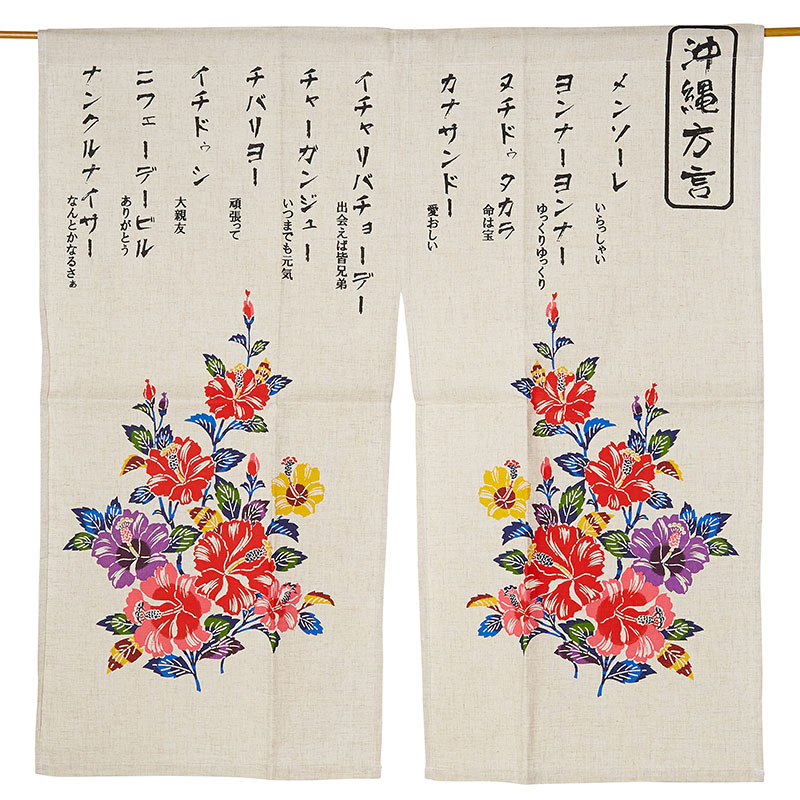 沖縄方言
メンソーレ
いらっしゃい
ヨンナーヨンナー
ゆっくりゆっくり
ヌチドゥタカラ
命は宝
カナサンドー
愛おしい
イチャリバチョーデー
出会えば皆兄弟
チャーガンジュー
いつまでも元気
チバリヨー
頑張って
イチドゥシ
大親友
ニフェーデービル
ありがとう
ナンクルナイサー
なんとかなるさぁ